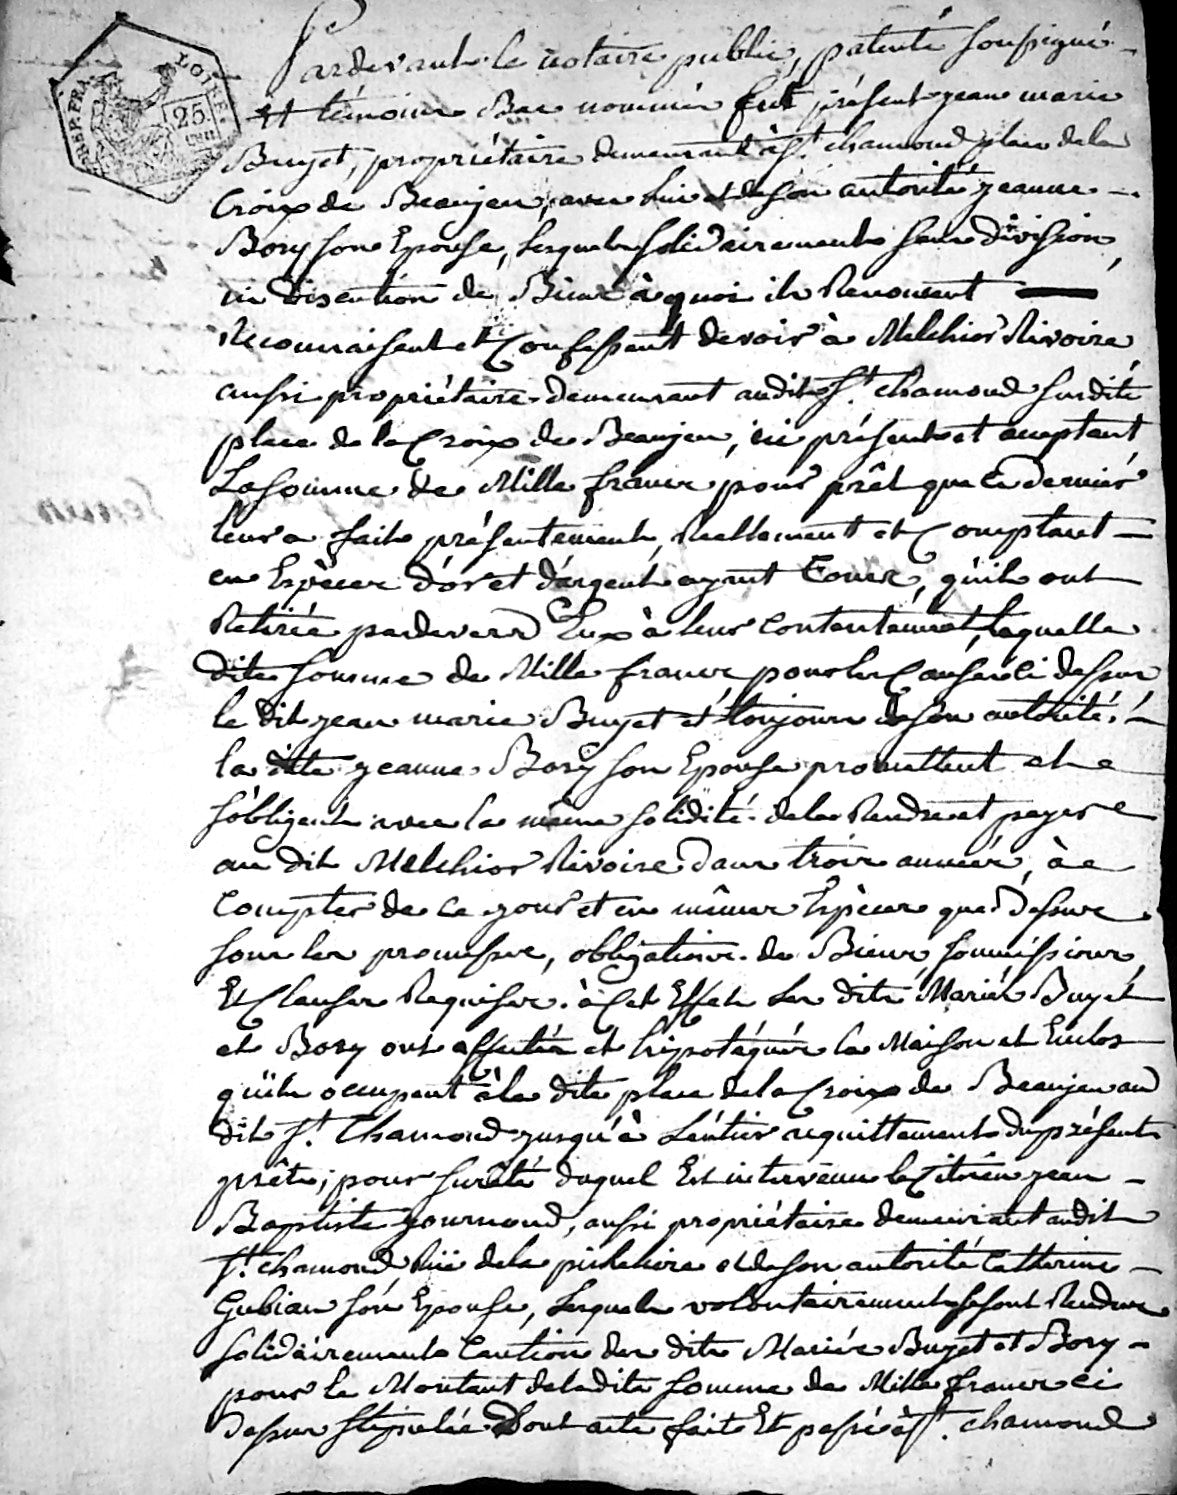 REP. FRA. LOIRE. 25 CEN
Pardevant le notaire public, patenté soussigné
et témoins Bas nommés fut présent jean marie
Buyet, propriétaire demeurant à St. chamond place dela
Croix de Beaujeu, avec lui et deson autorité jeanne
Bory son Epouse, lesquels solidairement sans division,
ni discution de Biens à quoi ils Renoncent
Reconnaissent et Confessent devoir à Melchior Rivoire,
aussi propriétaire demeurant audit St. chamond surdite
place de la Croix de Beaujeu, ici présent et acceptant
La somme de Mille francs pour prêt que ce dernier
leur a fait présentement, Réellement et Comptant
en Espèces d'or et d'argent ayant Cours, qu'ils ont
Retirée pardevers Eux à leur contentement, laquelle
dite somme de Mille francs pour les Causes ci dessus
le dit jean marie Buyet et toujours deson autorité
la dite jeanne Bory son Epouse promettent et
s'obligent avec la même solidité de la Rendre et payer
au dit Melchior Rivoire dans trois années, à
Compter de ce jour et en mêmes Espèces que dessus
sous les promesses, obligations de Biens soumissions,
Et Clauses Requises. à Cet Effet Les dits Mariés Buyet
et Bory ont affectés et hipotéqués la Maison et Enclos
qu'ils occupent à la dite place dela Croix de Beaujeu au
dit St. Chamond jusqu'à L'entier acquittement du présent
prêt; pour sureté duquel Est intervenu le Citoïen jean
Baptiste journoud, aussi propriétaire demeurant audit
St. chamond Rüe dela et deson autorité Catherine
Gubian son Epouse, lesquels volontairement se sont Rendus
solidairement Caution des dits Mariés Buyet et Bory
pour le Montant deladite somme de Mille francs ci
dessus stipulée Dont acte fait Et passé à St. chamond